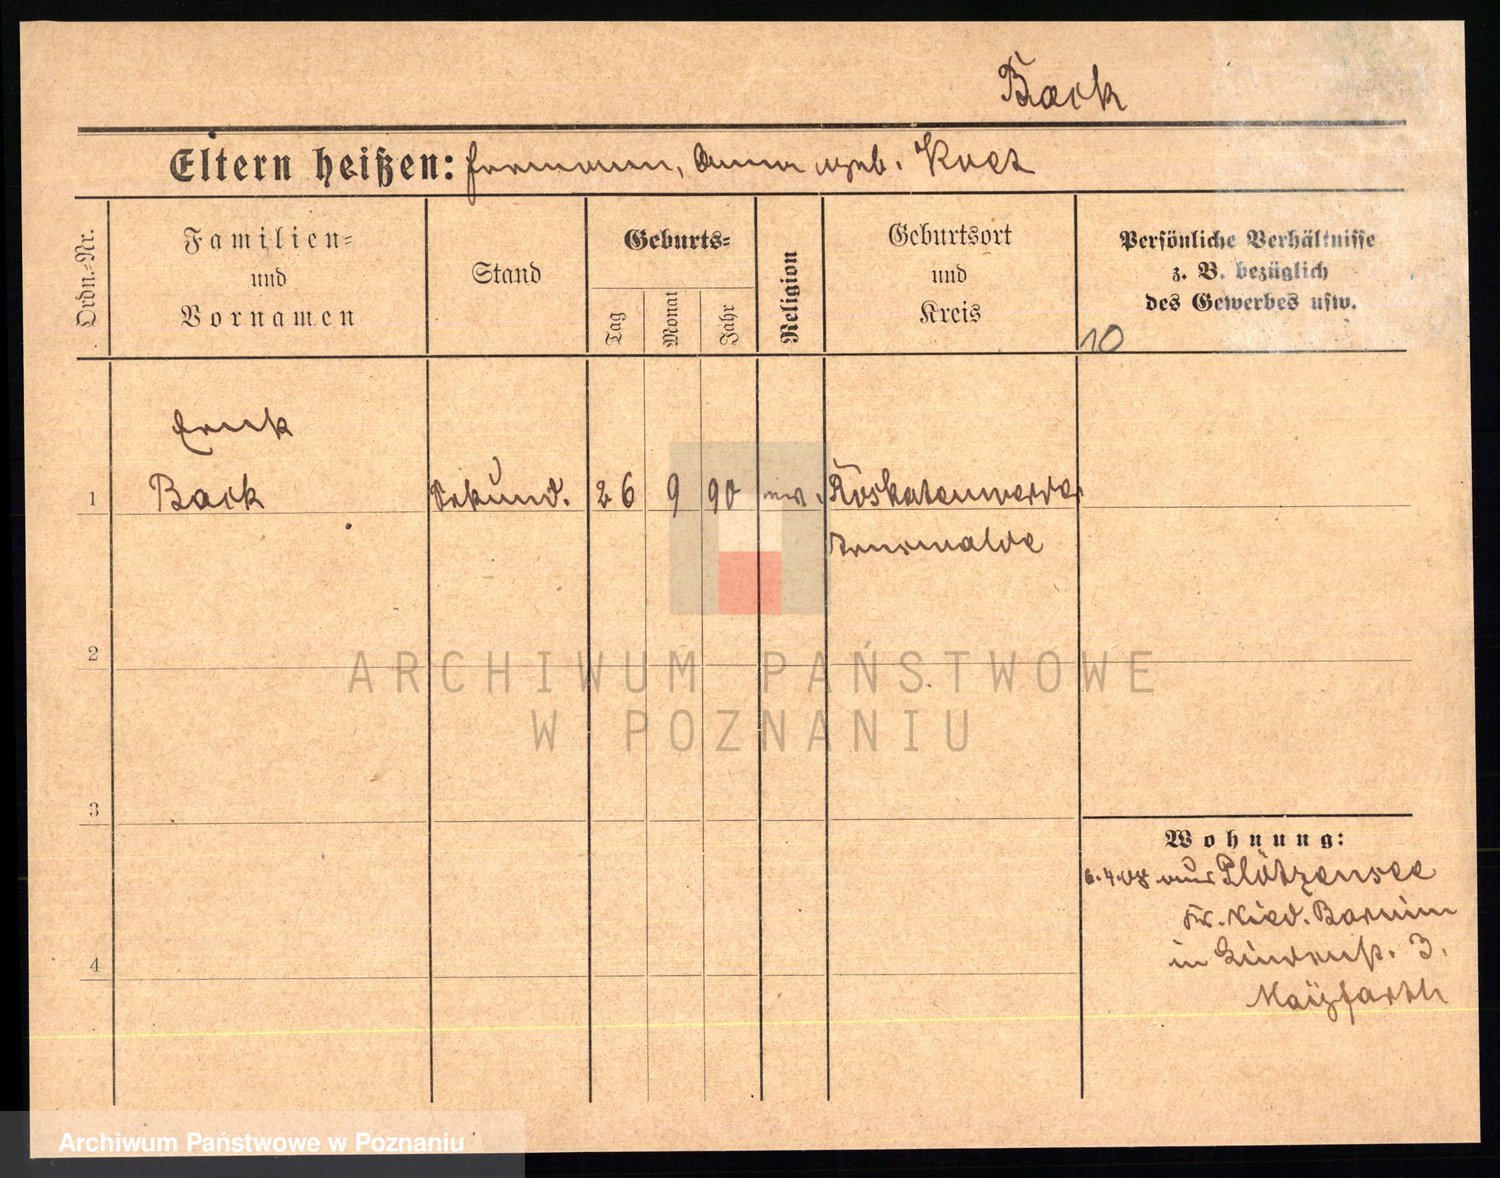 Back
Eltern heißen: Hermann, Anna geb. Kuez
Ordn.-Nr.
Familien-
und
Vornamen
Stand
Geburts-
Tag
Monat
Jahr
Religion
Geburtsort
und
Kreis
Persönliche Verhältnisse
z. B. bezüglich
des Gewerbes usw.
10
Erich
1 Back Sekund. 26 9 90
Arnswalde
2
3
4
Wohnung:
6.4.08 aus Plötzensee
Kr. Nied. Barnim
in 3.
ARCHIWUM PAŃSTWOWE
W POZNANIU
Archiwum Państwowe w Poznaniu